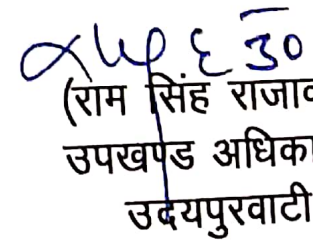 (राम सिंह राजाव
उपखण्ड अधिका
उदयपुरवाटी